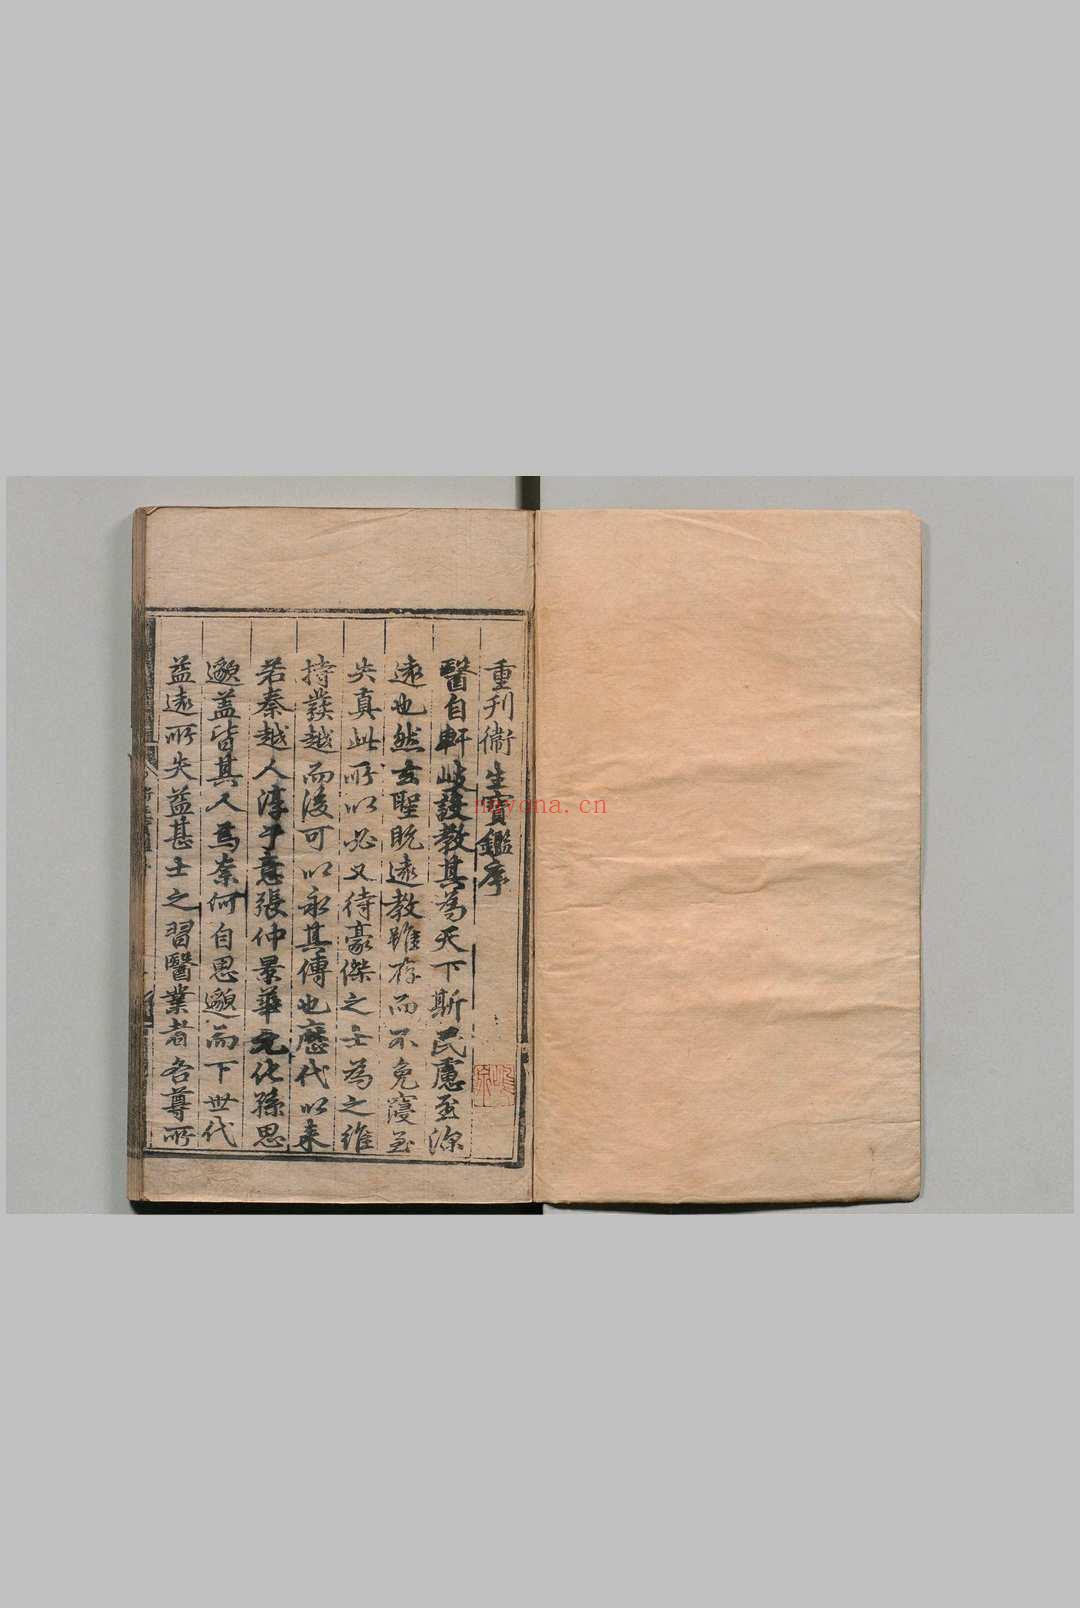 重刊衞生寶鑑序
醫自軒岐設教其為天下斯民慮至深
遠也然玄聖既遠教雖存而不免寖至
失真此所以必又待豪傑之士為之維
持發越而後可以永其傳也歷代以来
若秦越人淳于意張仲景華元化孫思
邈盖皆其人焉奈何自思邈而下世代
益遠所失益甚士之習醫業者各尊所
nayona.cn